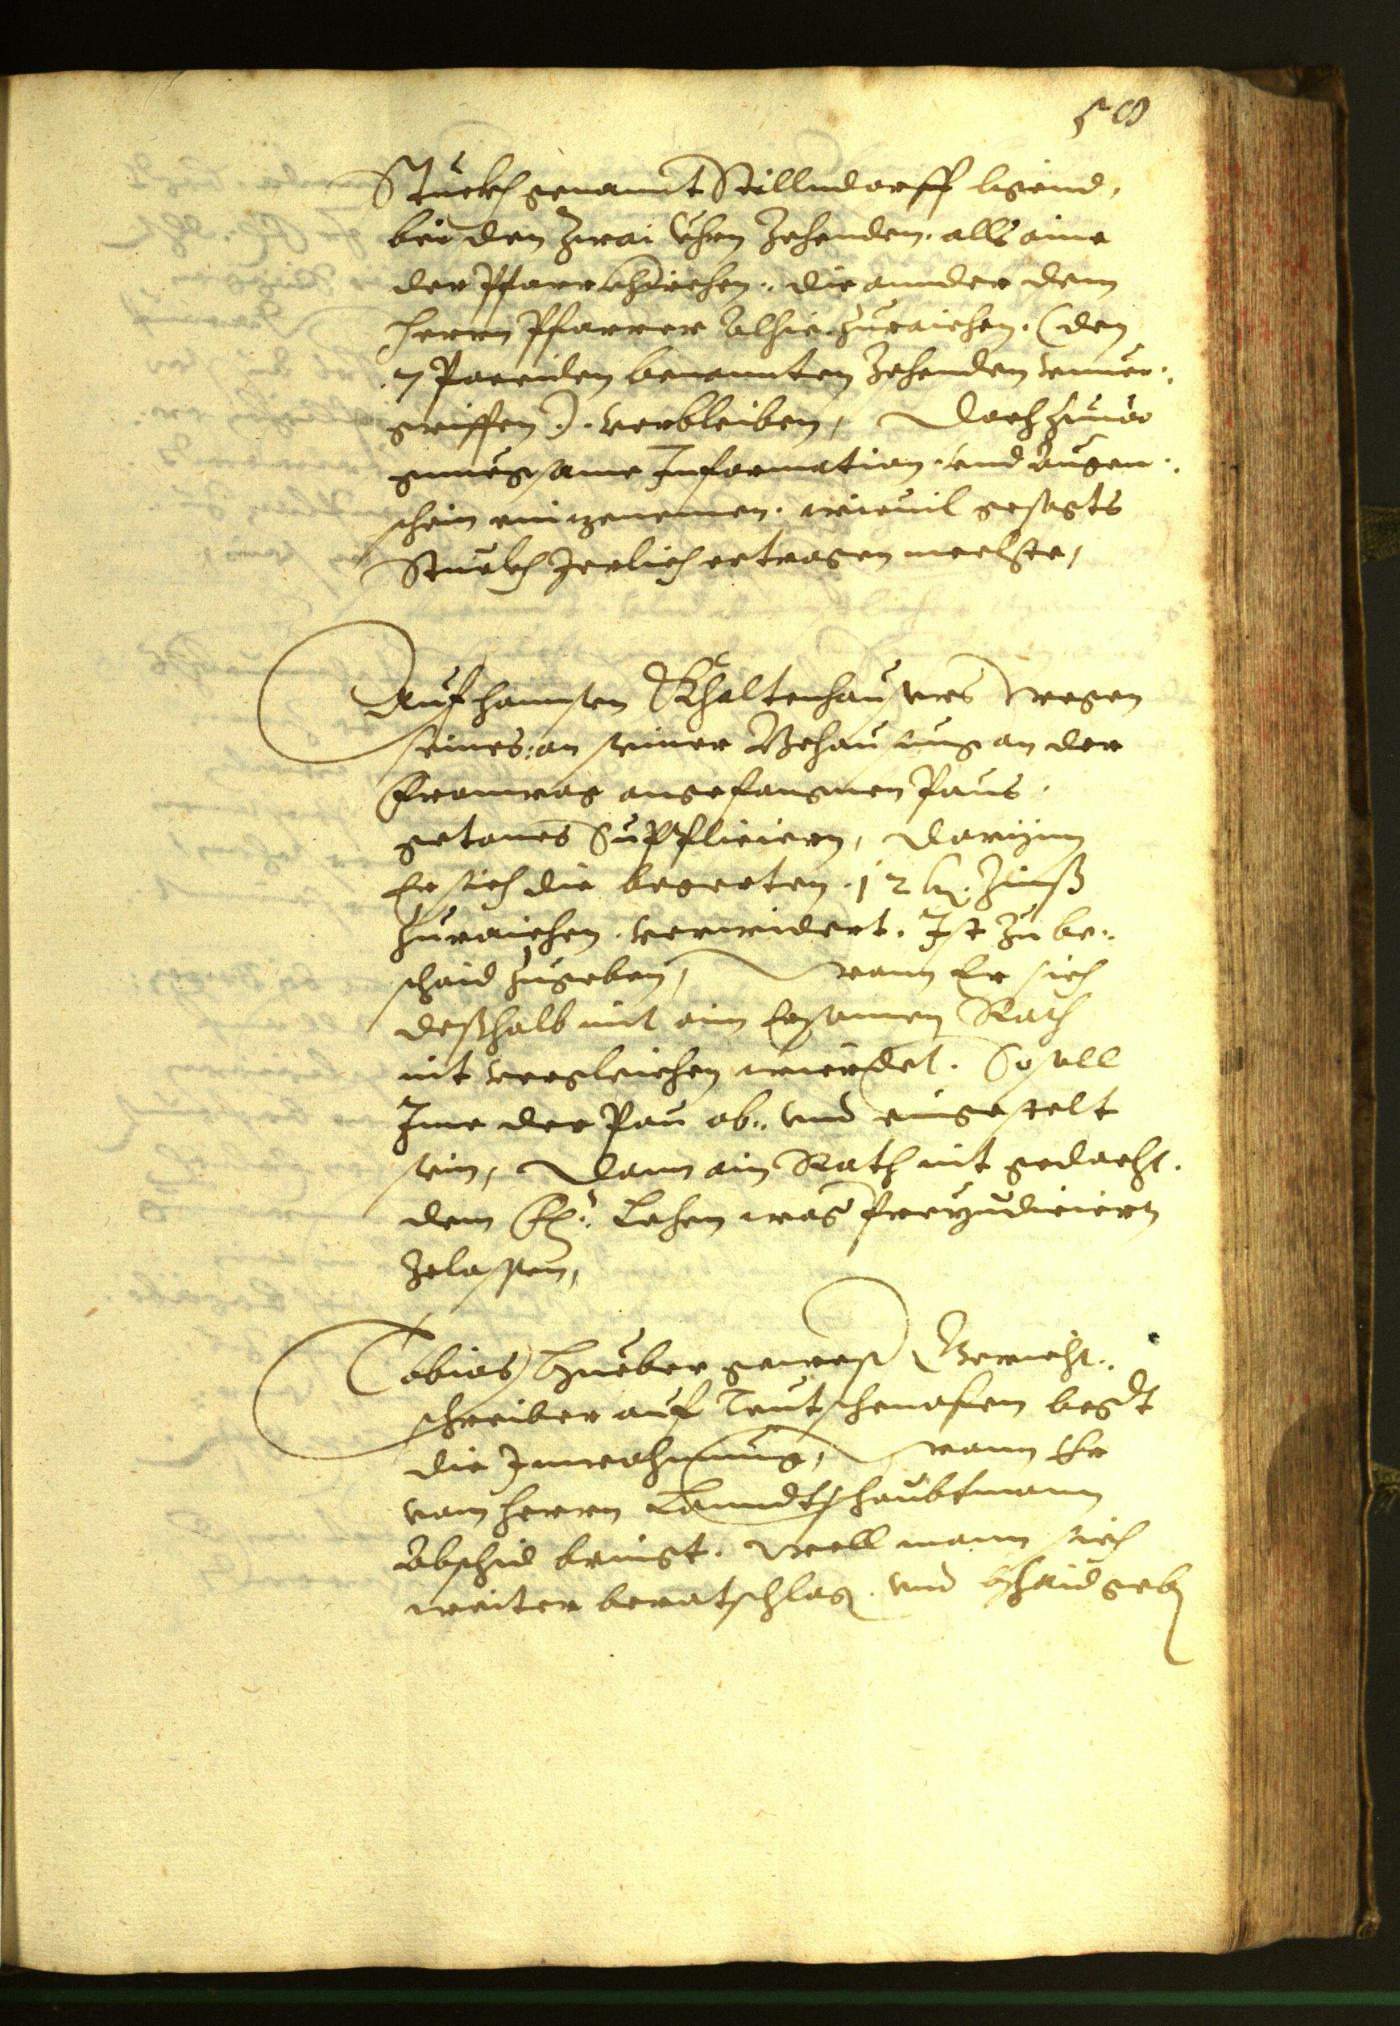 58
Stuckh genannt Stillendorff ligend,
bei den zwai Uhrn Zehenden. alls aine
der Pfarrkhirchen. die annder dem
Herrn Pfarrer alhie zuraichen. (den
7 Pareiden benannten Zehenden unuer:
griffen). verbleiben, Doch zuuor
gnuegsame Information. und Augen:
schein einzenemen. wieuil gesagts
Stuckh Jerlich ertragen mechte,
Auf Hannsen Khaltenhausers wegen
seines: an seiner Behausung an der
Franwag angefangnen Paus.
getanes Suppliciern, Darynn
Er sich die begerten .12 kr. Zinß
zuraichen. verwidert. Ist zu be:
schaid zugeben, wann Er sich
deßhalb mit aim Ersamen Rath
nit vergleichen wierdet. So soll
Ime der Pau ab: und eingestelt
sein, Dann ain Rath nit gedacht.
dem Lehen was preyudiciern
zelassen,
Tobias Hueber gewest Gericht:
schreiber auf Teutschenofen begert
die Innwohnung, wann Er
vom Herrn Lanndtshaubtmann
Abschid bringt. well mann sich
weiter beratschlag. und bschaid geben